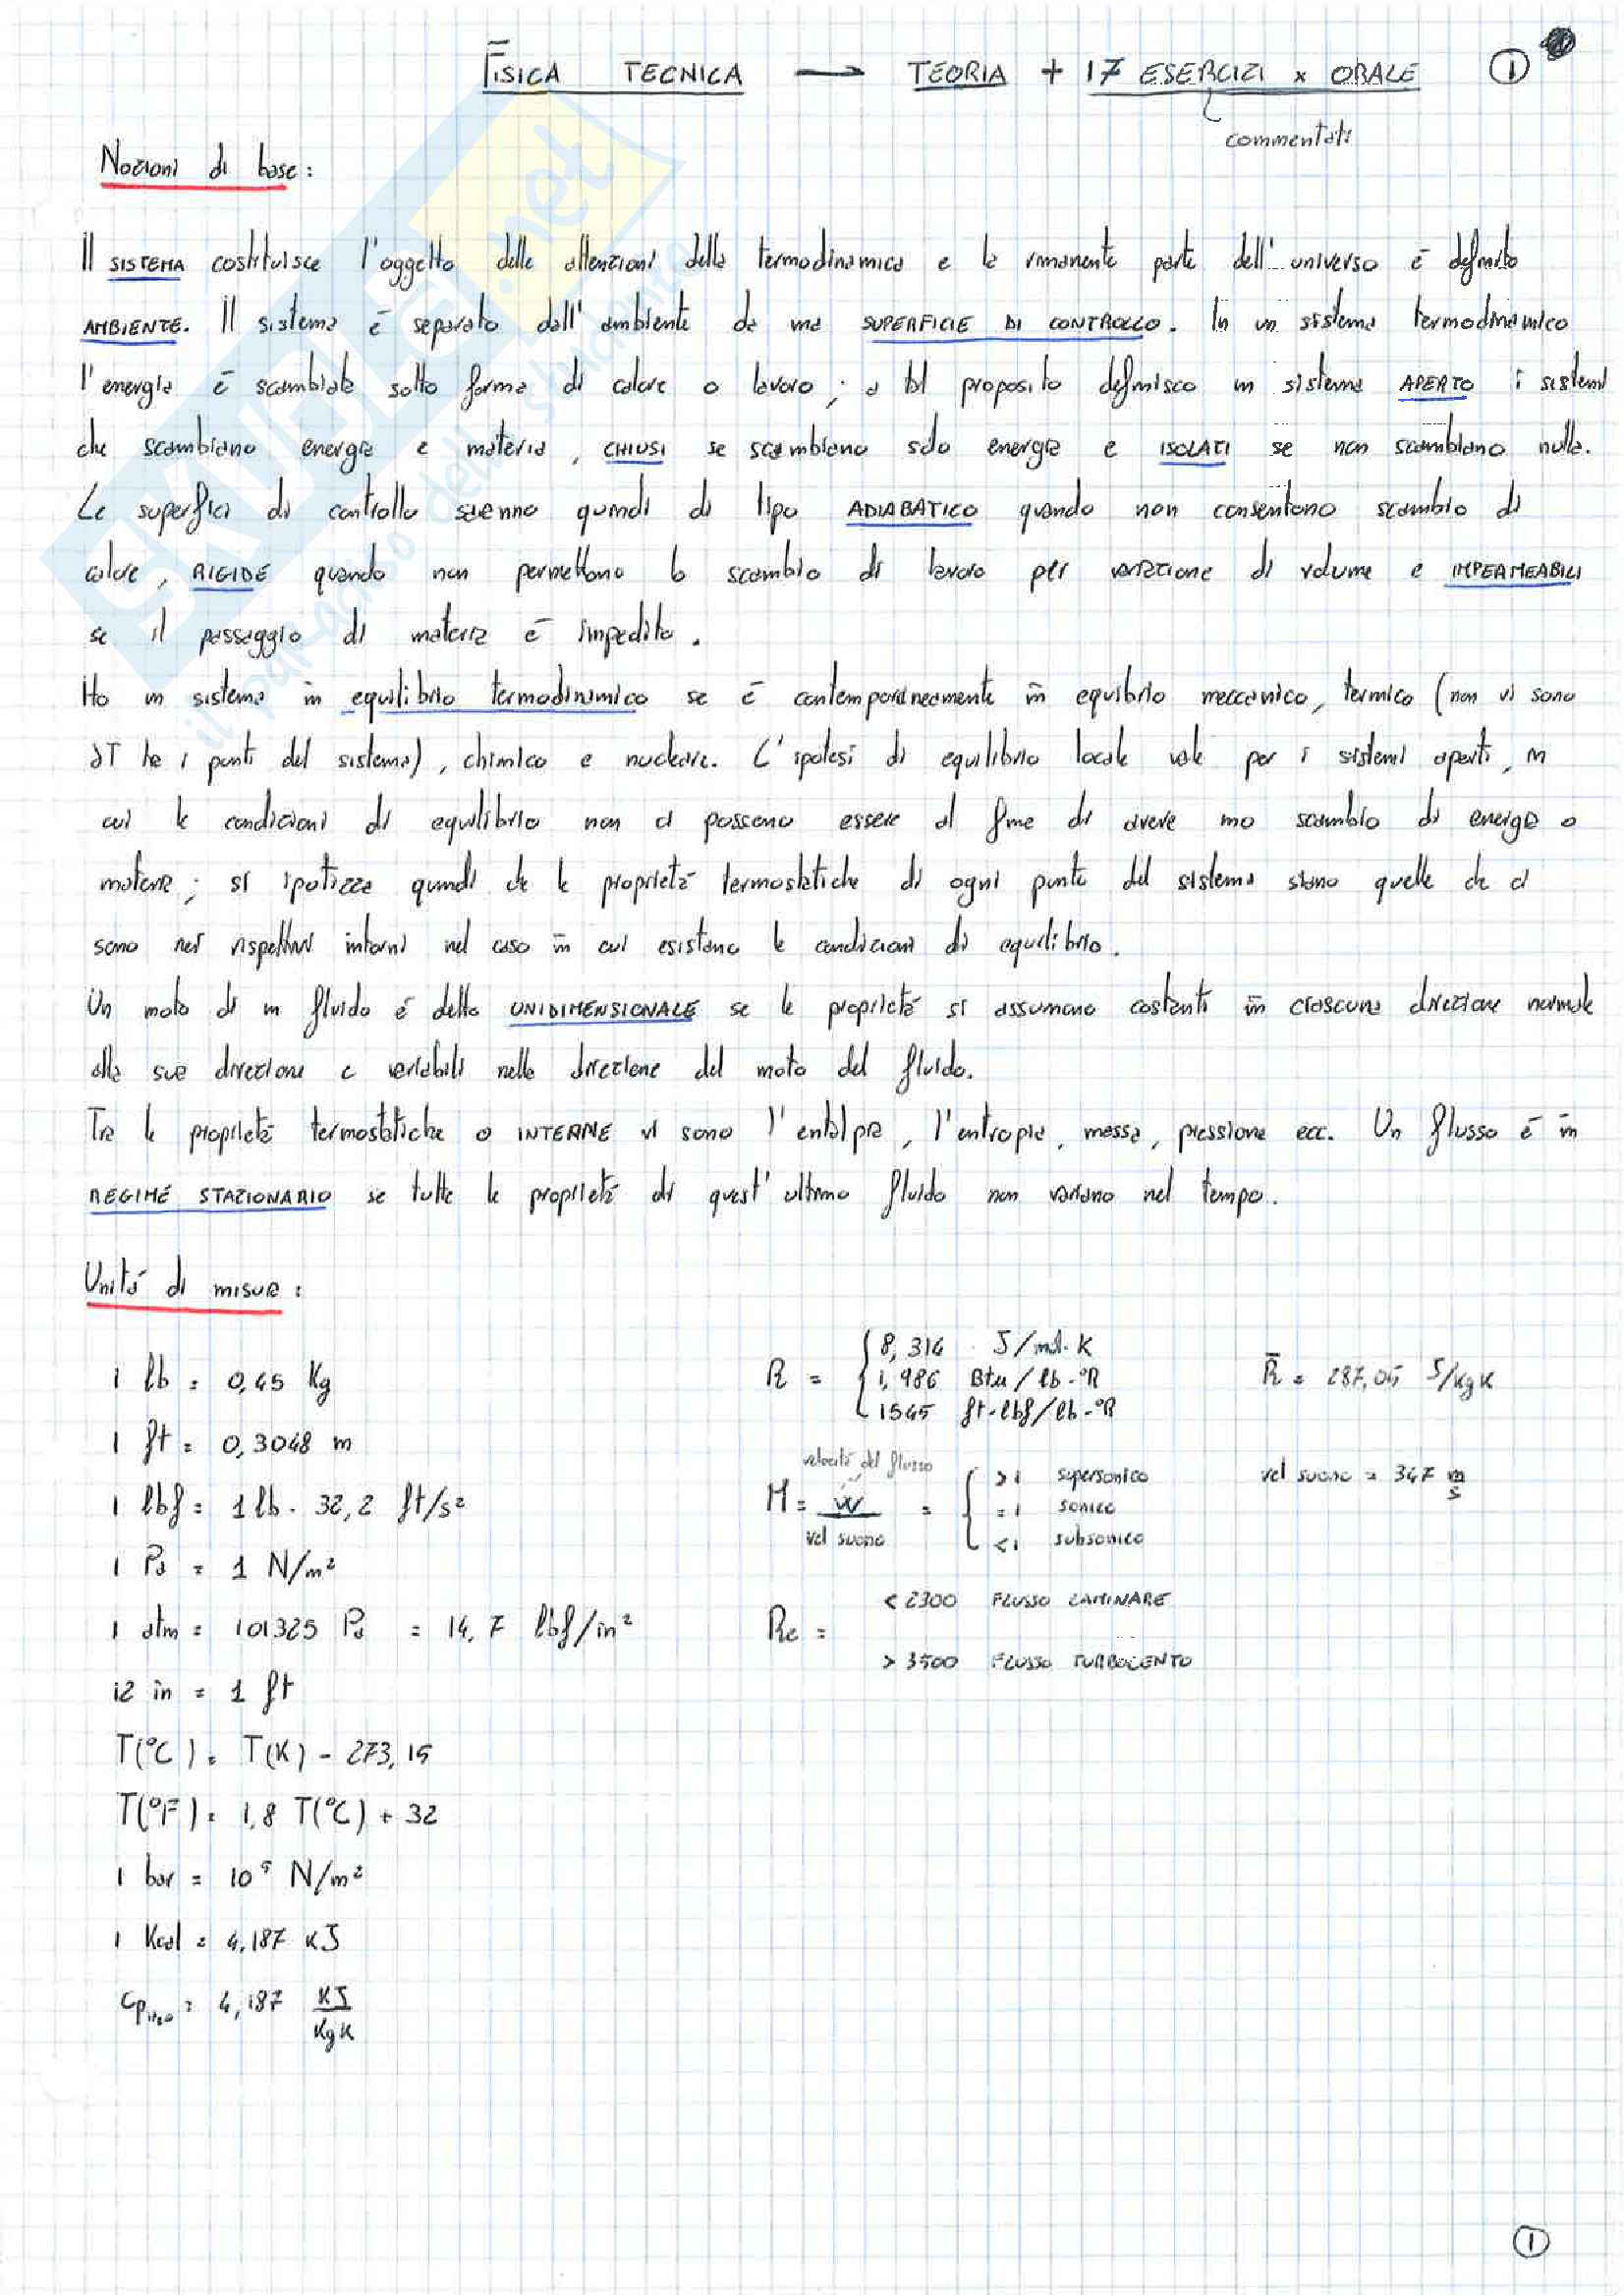 FISICA TECNICA → TEORIA + 17 ESERCIZI x ORALE ①
commentati
Nozioni di base:
Il SISTEMA costituisce l'oggetto delle attenzioni della termodinamica e la rimanente parte dell'universo è definito
AMBIENTE. Il sistema è separato dall'ambiente da una SUPERFICIE DI CONTROLLO. In un sistema termodinamico
l'energia è scambiata sotto forma di calore o lavoro; a tal proposito definisco un sistema APERTO i sistemi
che scambiano energia e materia, CHIUSI se scambiano solo energia e ISOLATI se non scambiano nulla.
Le superfici di controllo saranno quindi di tipo ADIABATICO quando non consentono scambio di
calore, RIGIDE quando non permettono lo scambio di lavoro per variazione di volume e IMPERMEABILI
se il passaggio di materia è impedito.
Ho un sistema in equilibrio termodinamico se è contemporaneamente in equilbrio meccanico, termico (non vi sono
ΔT tra i punti del sistema), chimico e nucleare. L'ipotesi di equilibrio locale vale per i sistemi aperti, in
cui le condizioni di equilibrio non ci possono essere al fine di avere uno scambio di energia o
materia; si ipotizza quindi che le proprietà termostatiche di ogni punto del sistema siano quelle che ci
sono nei rispettivi intorni nel caso in cui esistano le condizioni di equilibrio.
Un moto di un fluido è detto UNIDIMENSIONALE se le proprietà si assumono costanti in ciascuna direzione normale
alla sua direzione e variabili nella direzione del moto del fluido.
Tra le proprietà termostatiche o INTERNE vi sono l'entalpia, l'entropia, massa, pressione ecc. Un flusso è in
REGIME STAZIONARIO se tutte le proprietà di quest'ultimo fluido non variano nel tempo.
Unità di misura:
1 lb = 0,45 Kg
1 ft = 0,3048 m
1 lbf = 1 lb · 32,2 ft/s²
1 Pa = 1 N/m²
1 atm = 101325 Pa = 14,7 lbf/in²
12 in = 1 ft
T(°C) = T(K) - 273,15
T(°F) = 1,8 T(°C) + 32
1 bar = 10⁵ N/m²
1 Kcal = 4,187 KJ
Cp H₂O = 4,187 KJ/KgK
R = { 8,314 J/mol·K
1,986 Btu/lb·°R
1545 ft·lbf/lb·°R
R̄ = 287,05 J/KgK
velocità del flusso
M = w / vel suono = { >1 supersonico
=1 sonico
<1 subsonico
vel suono = 347 m/s
Re = < 2300 FLUSSO LAMINARE
> 3500 FLUSSO TURBOLENTO
①
SKUOLA.net
il paradiso dello studente